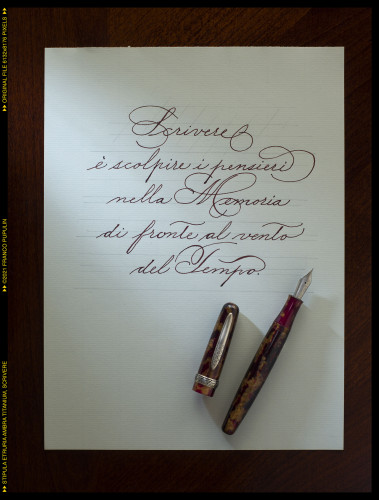 Scrivere
è scolpire i pensieri
nella Memoria
di fronte al vento
del Tempo.
STIPULA ETRURIA AMBRA TITANIUM, SCRIVERE
©2021 FRANCO PUPULIN
ORIGINAL FILE 6132x8176 PIXELS